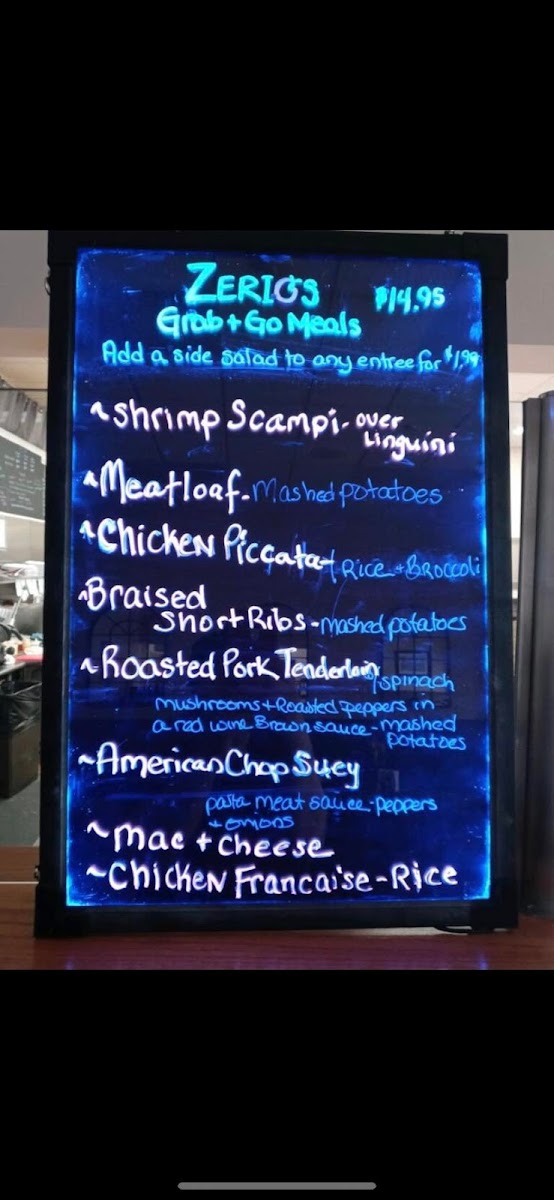 ZERIO'S $14.95
Grab + Go Meals
Add a side salad to any entree for $1.99
~Shrimp Scampi - over
Linguini
~Meatloaf - Mashed potatoes
~Chicken Piccata - Rice + Broccoli
~Braised
Short Ribs - mashed potatoes
~Roasted Pork Tenderloin / spinach
mushrooms + Roasted peppers in
a red wine Brown sauce - mashed
potatoes
~American Chop Suey
pasta meat sauce - peppers
+ onions
~Mac + Cheese
~Chicken Francaise - Rice